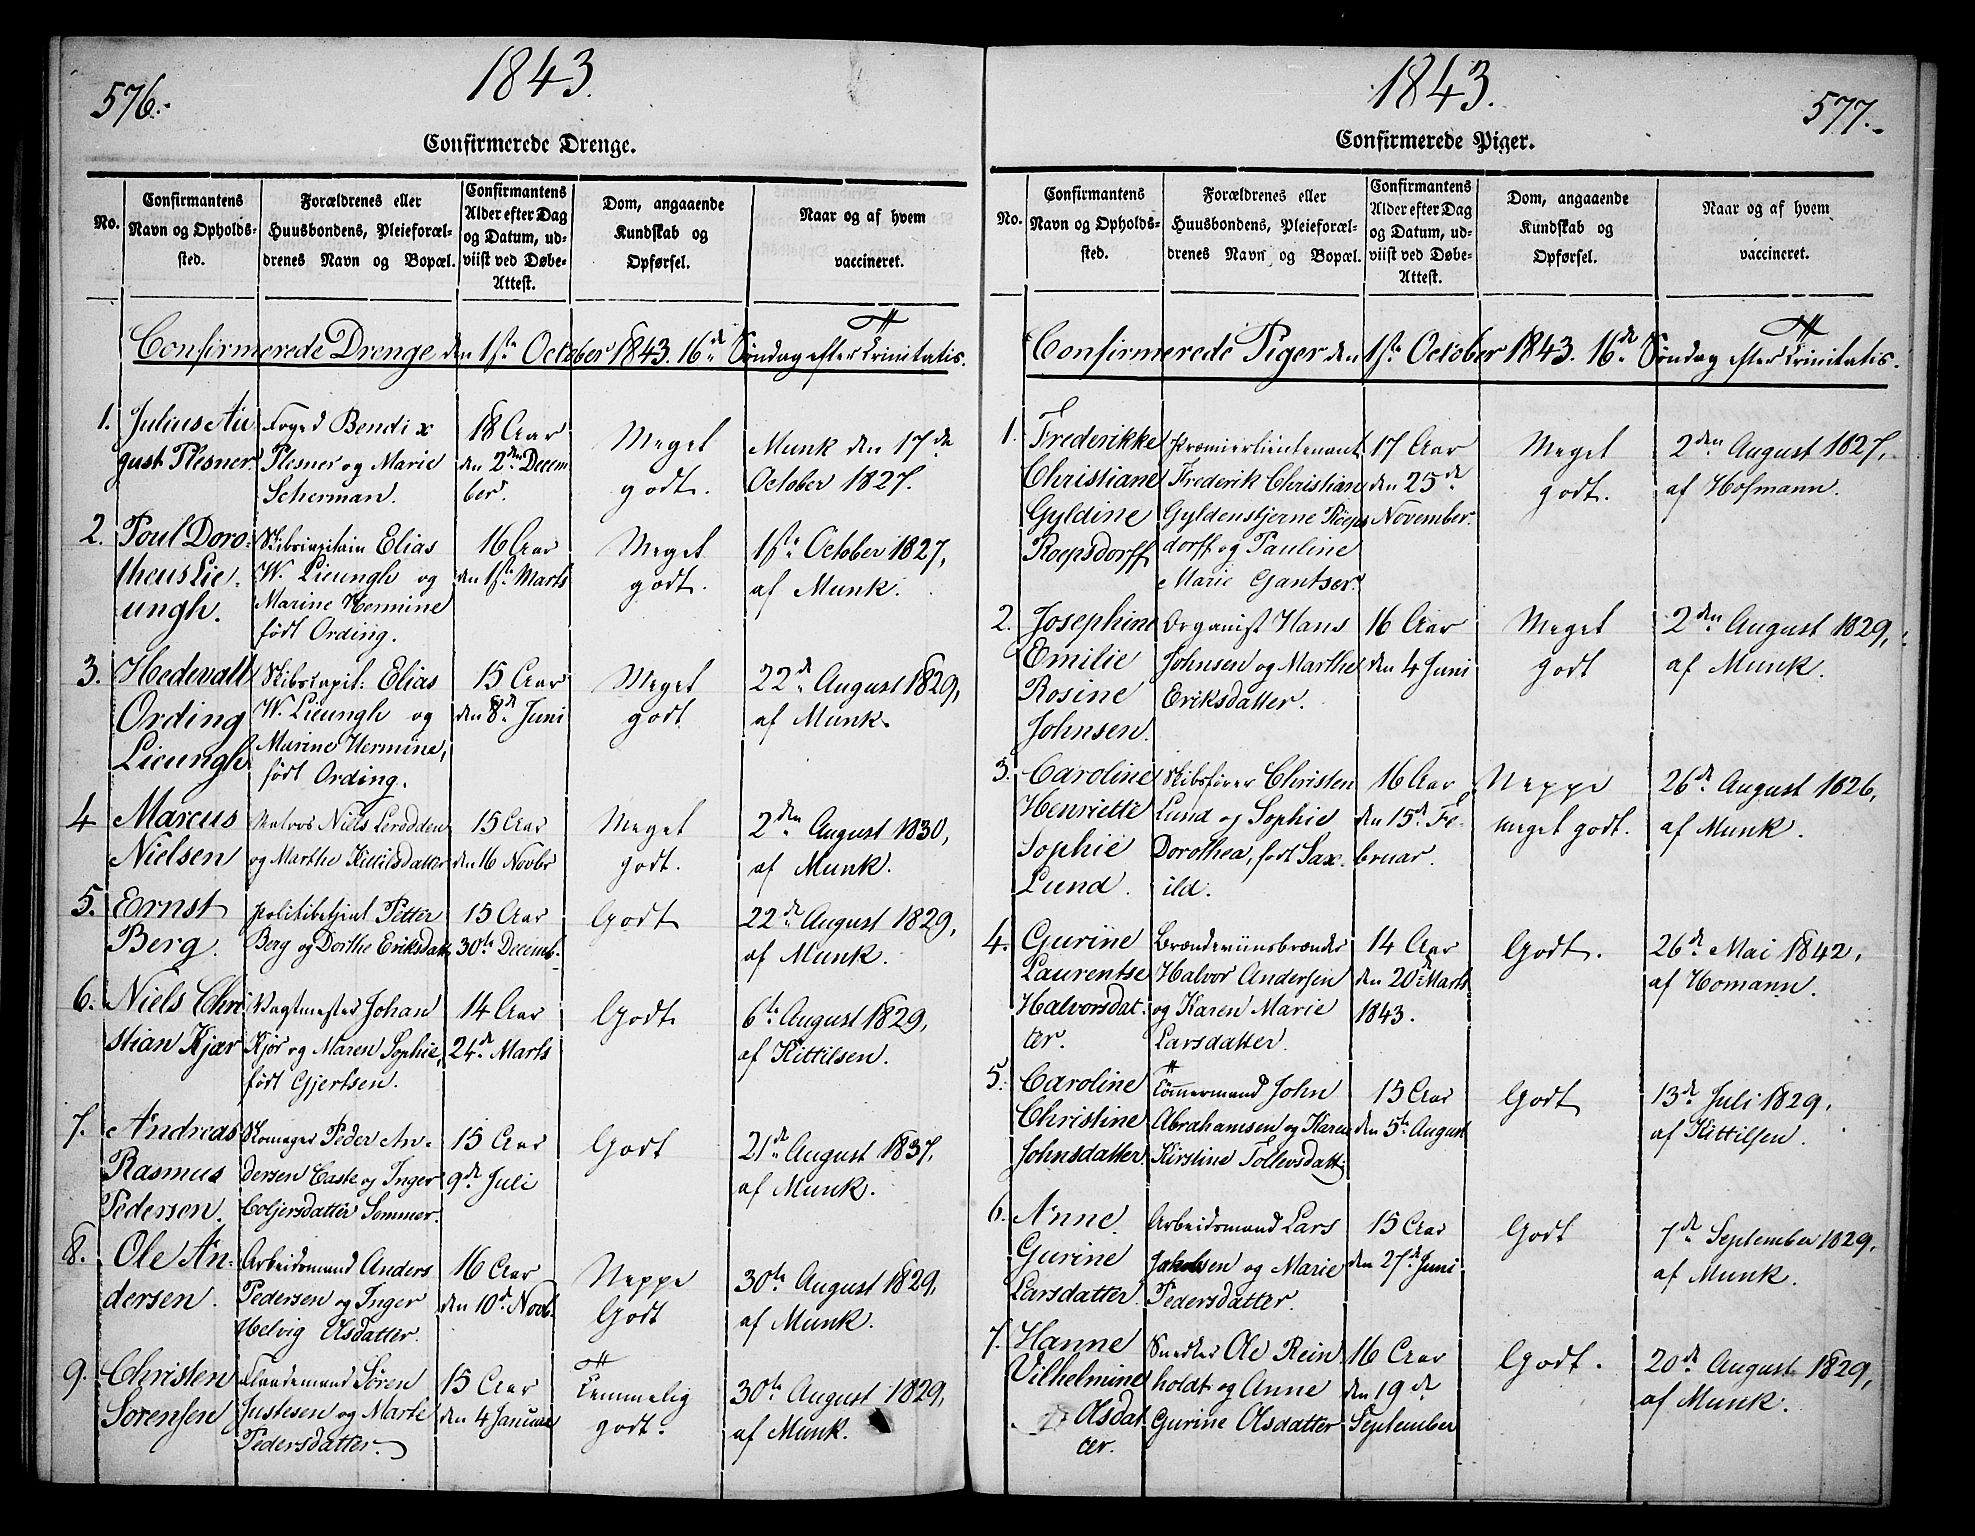 576.
1843.
Confirmerede Drenge.
No.
Confirmantens
Navn og Opholds-
sted.
Forældrenes eller
Huusbondens, Pleieforæl-
drenes Navn og Bopæl.
Confirmantens
Alder efter Dag
og Datum, ud-
viist ved Døbe-
Attest.
Dom, angaaende
Kundskab og
Opførsel.
Naar og af hvem
vaccineret.
Confirmerede Drenge den 1ste October 1843. 16de Søndag efter Trinitatis.
1.
Julius Au
gust Plesner.
Foged Bendix
Plesner og Marie
Scherman.
18 Aar
den 2den Decem
ber.
Meget
godt.
Munk den 17de
October 1827.
2.
Poul Doro-
theus Lie-
ungh.
Skibscapitain Elias
W. Lieungh og
Marine Hermine
født Ording.
16 Aar
den 1ste Marts
Meget
godt.
1ste October 1827,
af Munk.
3.
Hedevall
Ording
Lieungh
Skibscapit: Elias
W. Lieungh og
Marine Hermine,
født Ording.
15 Aar
den 8de Juni
Meget
godt
22de August 1829,
af Munk.
4
Marcus
Nielsen
Niels
og Marthe Kittilsdatter
15 Aar
den 16 Novbr
Meget
godt.
2den August 1830,
af Munk.
5.
Ernst
Berg.
Politibetjent Petter
Berg og Dorthe Eriksdatt
15 Aar
30te Decemb.
Godt
22de August 1829,
af Munk.
6.
Niels Chri
stian Kjær
Vagtmester Johan
Kjør og Maren Sophie,
født Gjertsen.
14 Aar
24de Marts
Godt
6te August 1829,
af Kittilsen.
7.
Andreas
Rasmus
Pedersen.
Skomager Peder An-
dersen Caste og Inger
Coljersdatter Sommer.
15 Aar
9de Juli
Godt
21de August 1837,
af Munk.
8.
Ole An-
dersen.
Arbeidsmand Anders
Pedersen og Inger
Helvig Olsdatter.
16 Aar
den 10de Novb.
Neppe
Godt
30te August 1829,
af Munk.
9.
Christen
Sørensen
Søren
Justesen og Marte
Pedersdatter.
15 Aar
den 4 Januar
Temmelig
godt.
30te August 1829,
af Munk.
1843.
577.
Confirmerede Piger.
No.
Confirmantens
Navn og Opholds-
sted.
Forældrenes eller
Huusbondens, Pleieforæl-
drenes Navn og Bopæl.
Confirmantens
Alder efter Dag
og Datum, ud-
viist ved Døbe-
Attest.
Dom, angaaende
Kundskab og
Opførsel.
Naar og af hvem
vaccineret.
Confirmerede Piger den 1ste October 1843. 16de Søndag efter Trinitatis.
1.
Frederikke
Christiane
Gyldine
Roepsdorff
Premierlieutenant
Frederik Christian
Gyldenstjerne Röeps
dorff og Pauline
Marie Gantser.
17 Aar
den 25de
November.
Meget
godt.
2den August 1827,
af Hofmann.
2.
Josephine
Emilie
Rosine
Johnsen.
Organist Hans
Johnsen og Marthe
Eriksdatter.
16 Aar
den 4 Juni
Meget
godt
2den August 1829,
af Munk.
3.
Caroline
Henriette
Sophie
Lund.
Skibsfører Christen
Lund og Sophie
Dorothea, født Sax-
ild.
16 Aar
den 15de Fe-
bruar.
Neppe
meget godt.
26de August 1826,
af Munk.
4.
Gurine
Laurentse
Halvorsdat-
ter.
Brændeviinsbrænder
Halvor Andersen
og Karen Marie
Larsdatter.
14 Aar
den 20de Marts
1843.
Godt.
26de Mai 1842,
af Homann.
5.
Caroline
Christine
Johnsdatter.
Tømmermand John
Abrahamsen og Karen
Kirstine Tollevsdatt.
15 Aar
den 5te August
Godt
13de Juli 1829.
af Kittilsen.
6.
Anne
Gurine
Larsdatter.
Arbeidsmand Lars
Jakobsen og Marie
Pedersdatter.
15 Aar
den 27de Juni
Godt
7de September 1829,
af Munk.
7.
Hanne
Vilhelmine
Olsdat
ter.
Snedker Ole Rein
holdt og Anne
Gurine Olsdatter
16 Aar
den 19de
September
Godt.
20de August 1829,
af Munk.